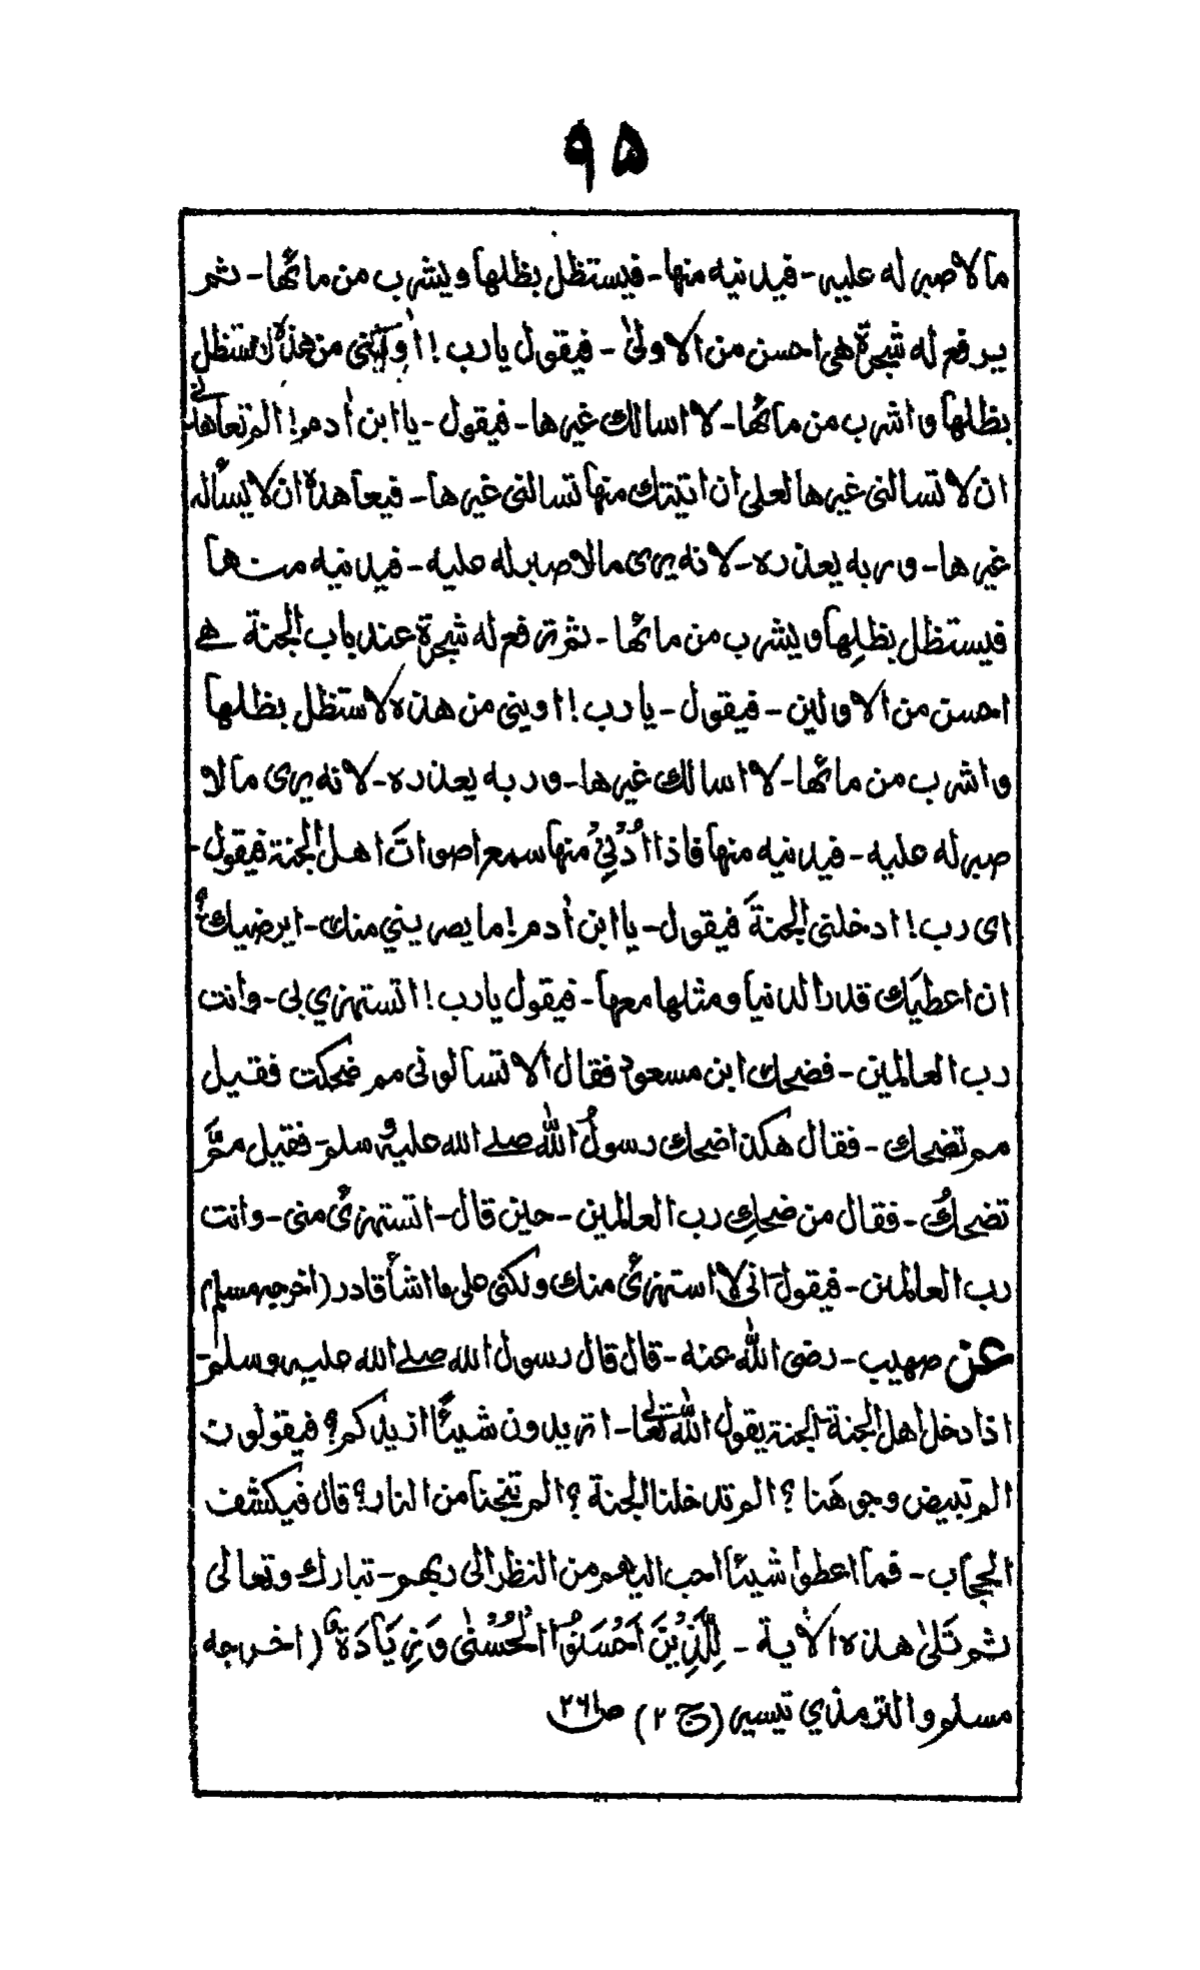 ۹۵
ما لا صبر له عليه - فيدنيه منها - فيستظل بظلها ويشرب من مائها - ثم
يرفع له شجرة هى احسن من الاولىٰ - فيقول يا رب ! من هذه لاستظل
بظلها و اشرب من مائها - لا اسالك غيرها - فيقول - يا ابن اٰدم ! الم تعاهدنى
ان لا تسالنى غيرها لعلى ان اتيتك منها تسالنى غيرها - فيعاهده ان لا يسأله
غيرها - و ربه يعذره - لانه يرى ما لا صبر له عليه - فيدنيه منها
فيستظل بظلِها ويشرب من مائها - ثم ترفع له شجرة عند باب الجنة هے
احسن من الاولين - فيقول - يا رب ! اوينى من هذه لاستظل بظلها
و اشرب من مائها - لا اسالك غيرها - و ربه يعذره - لانه يرى ما لا
صبر له عليه - فيدنيه منها فاذا اُدْنِىْ منها سمع اصواتَ اهل الجنة فيقول -
اى رب ! ادخلنى الجنةَ فيقول - يا ابن اٰدم ! ما يصريني منك - ايرضيك
ان اعطيَك قدر الدنيا و مثلها معها - فيقول يا رب ! اتستهزي بى - وانت
رب العالمين - فضحك ابن مسعودؓ فقال الا تسالونى مم ضحكت فقيل
مم تضحك - فقال هكذا ضحك رسولُ اللّٰه صلے الله عليه وسلم - فقيل ممَّ
تضحكُ - فقال من ضحكِ رب العالمين - حين قال - اتستهزئُ منى - وانت
رب العالمين - فيقول انى لا استهزئُ منك ولكنى على ما اشأ قادر (اخرجه مسلم)
عن صهيب - رضى اللّٰه عنه - قال قال رسول الله صلے الله عليه وسلم -
اذا دخل اهل الجنة الجنة يقول اللّٰه تعالےٰ - اتريدون شيئًا ازيدكم؟ فيقولون
الم تبيض وجوهَنا ؟ الم تدخلنا الجنة ؟ الم تنجنا من النار؟ قال فيكشف
الحجاب - فما اعطوا شيئا احب اليهم من النظر الى ربهم - تبارك وتعالى
ثم تَلىٰ هذه الاٰية - لِلَّذِيْنَ اَحْسَنُوْا الْحُسْنٰى وَزِيَادَةٌ (اخرجه
مسلم و الترمذي تيسير (ج ۲) ص ۲۶۱